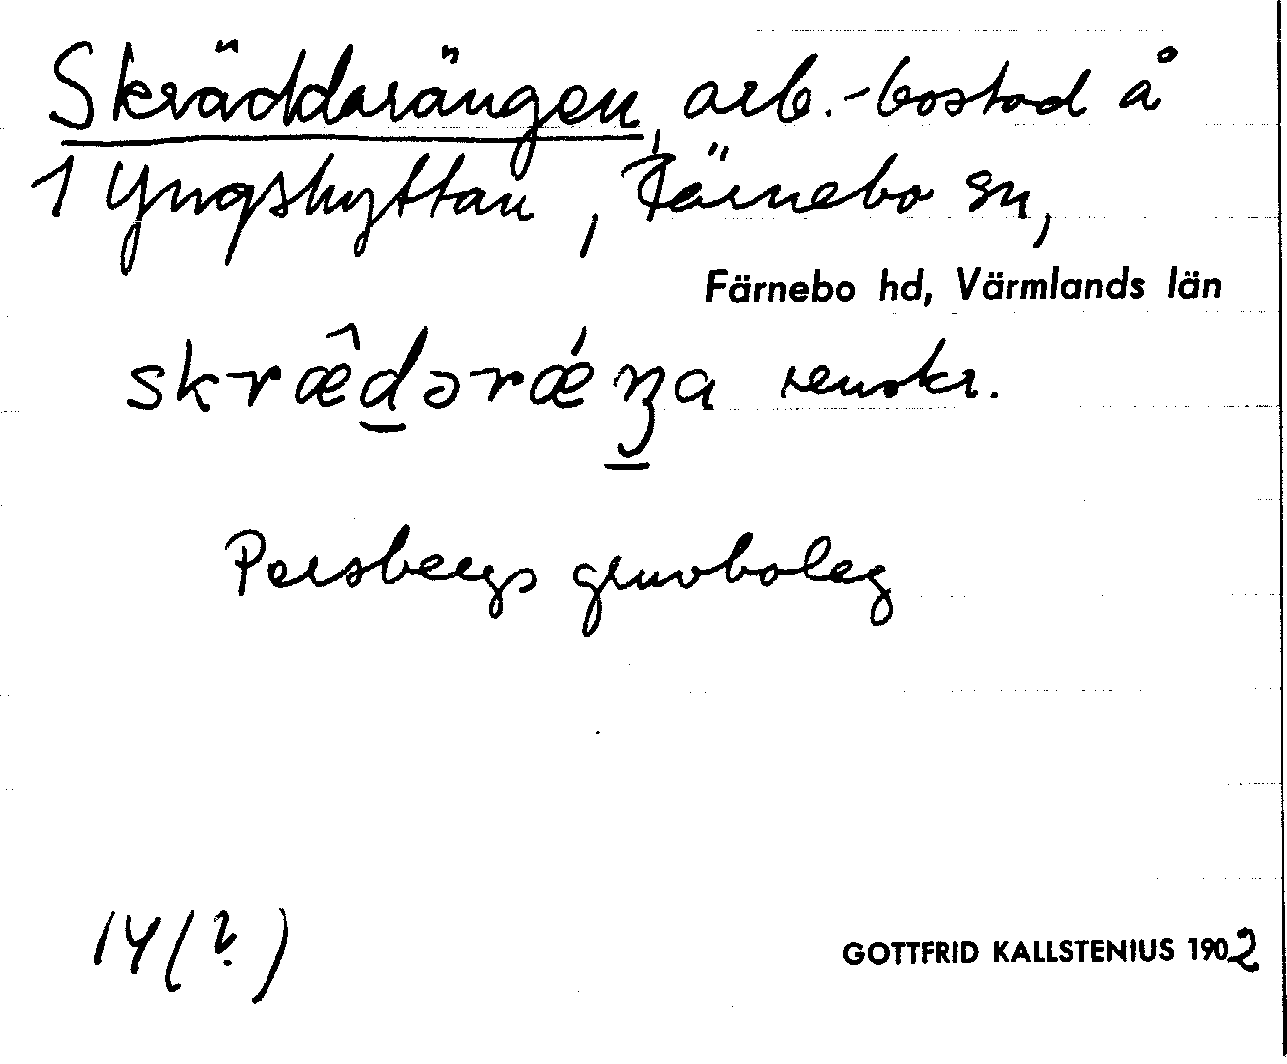 Skräddarängen, arb.-bostad å
1 Yngshyttan, Färnebo sn,
Färnebo hd, Värmlands län
skræ̂d̲ərǽŋ̲a renskr.
Persbergs gruvbolag
14(?)
GOTTFRID KALLSTENIUS 1902